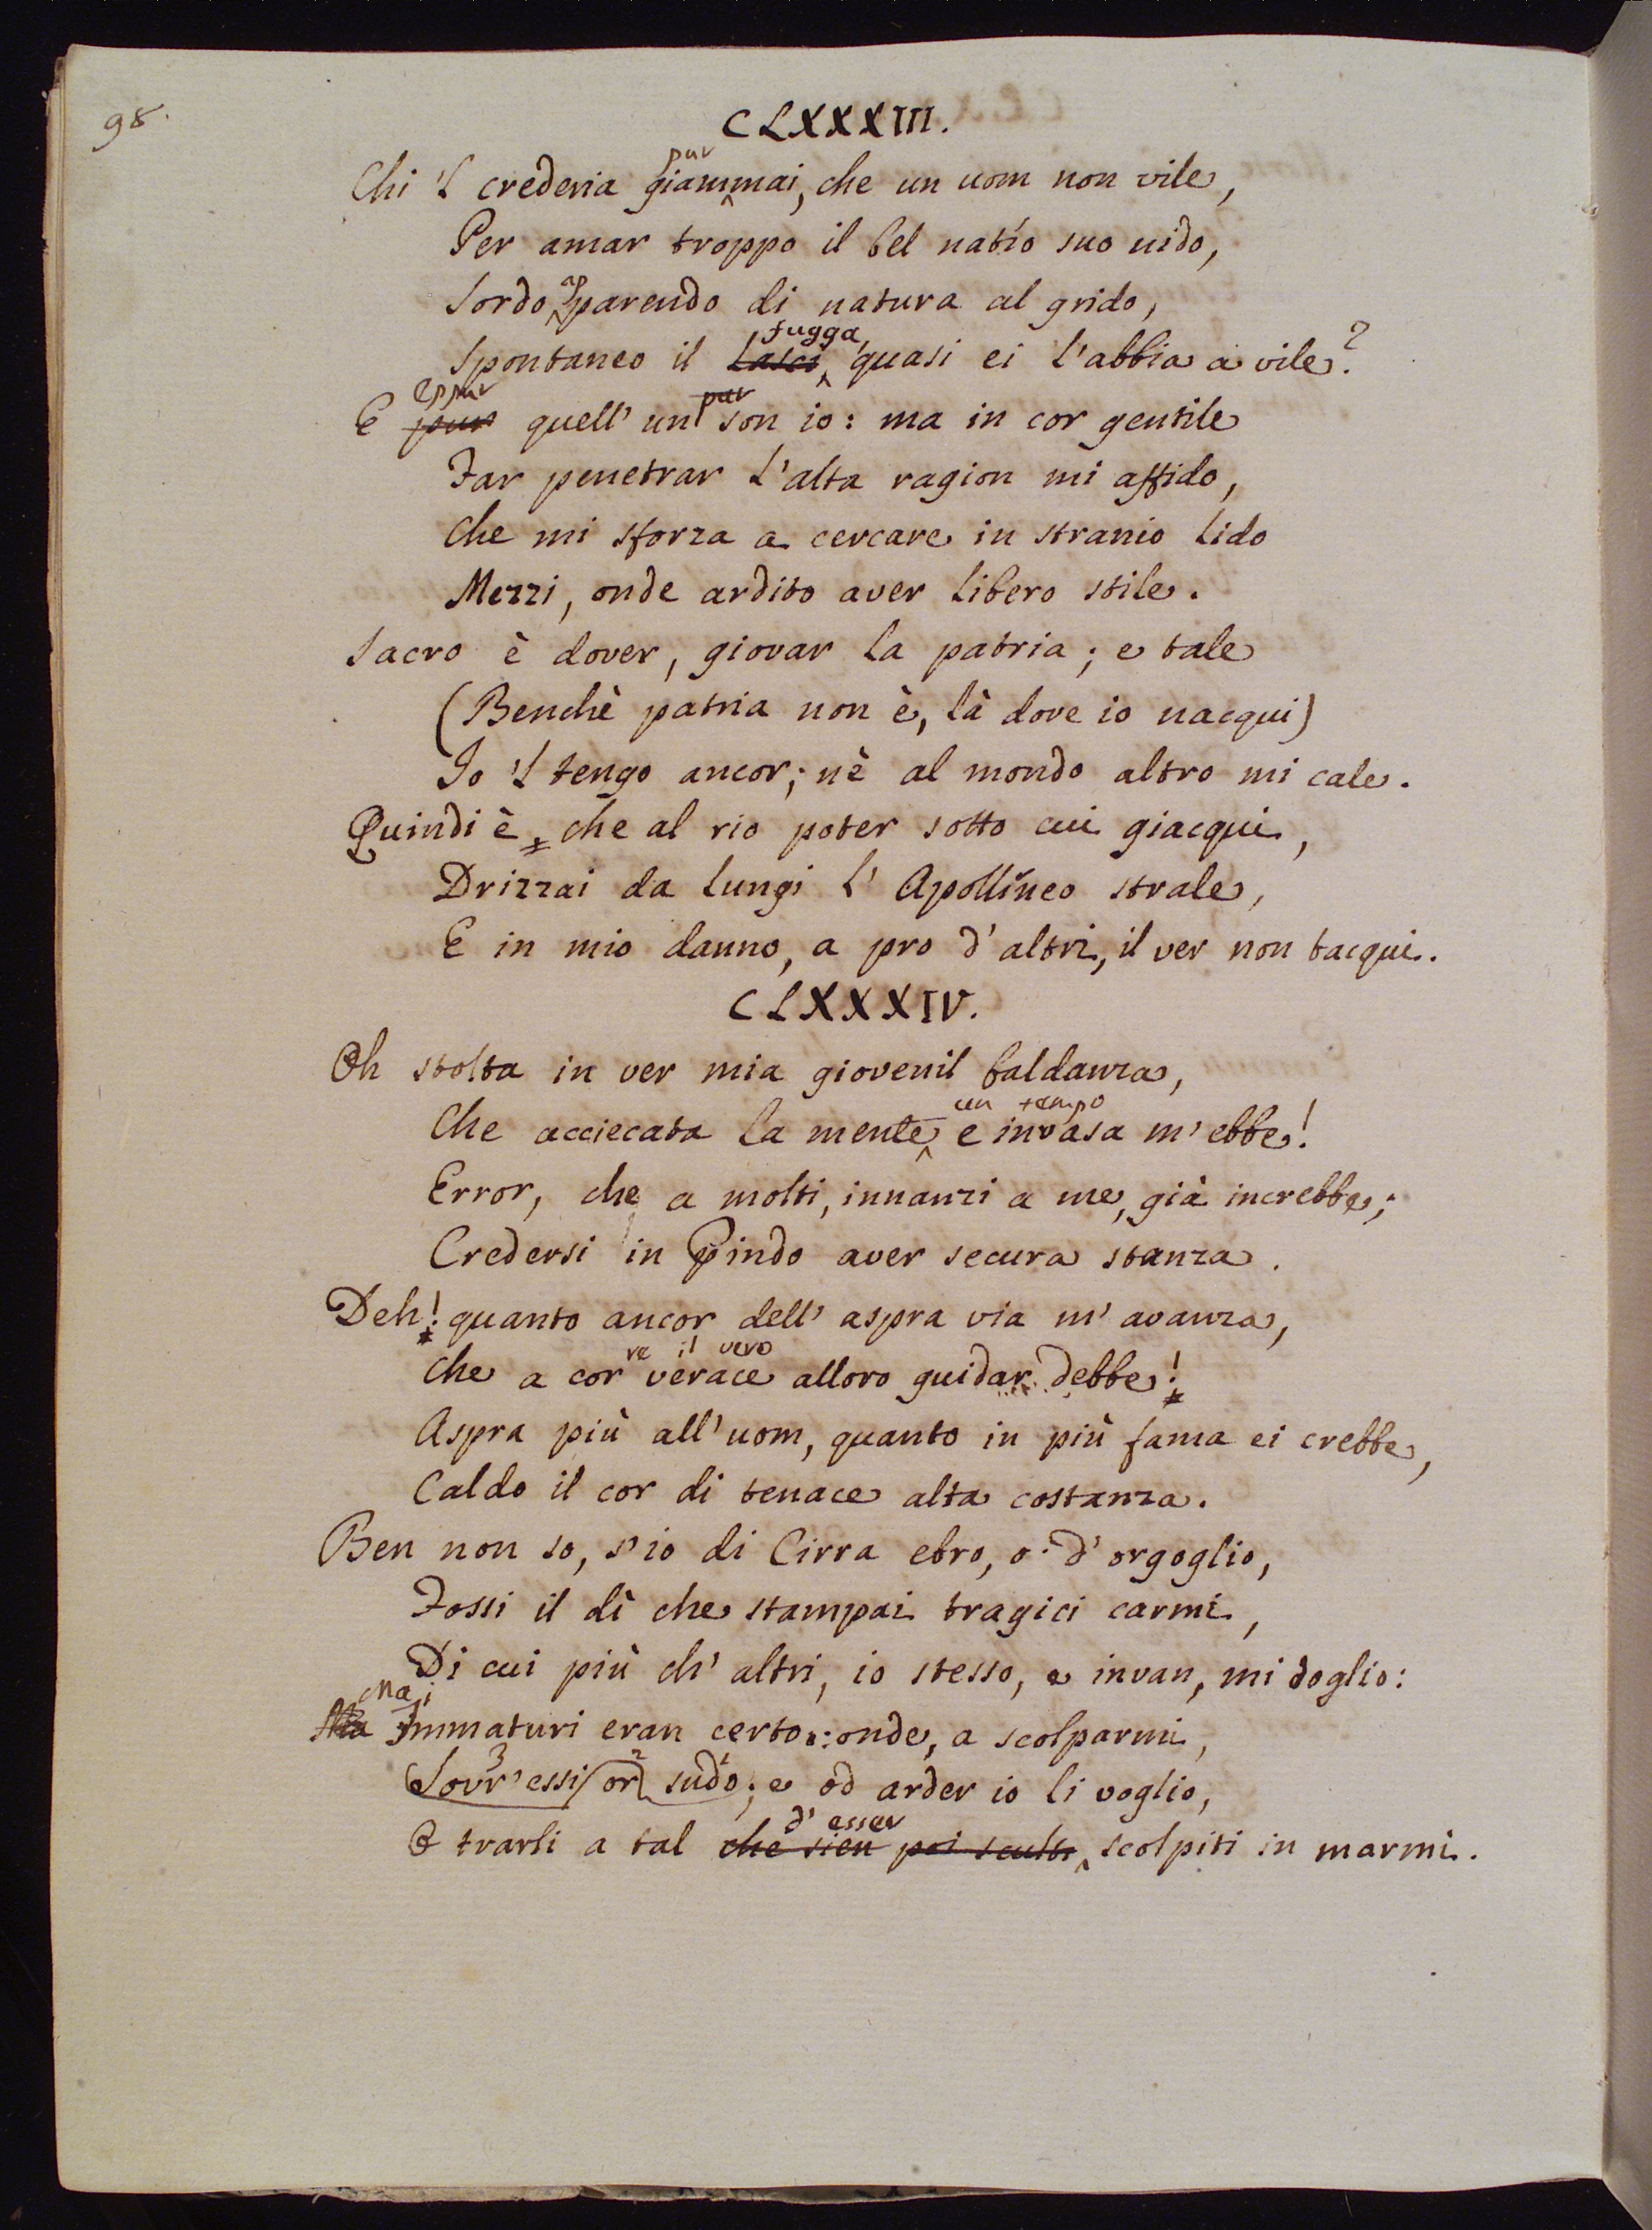 98.
CLXXXIII.
pur
Chi 'l crederia giammai, che un uom non vile,
Per amar troppo il bel natío suo nido,
ap
Sordo parendo di natura al grido,
fugga,
Spontaneo il lasci quasi ei l'abbia a vile?
eppur pur
E pur quell' un son io: ma in cor gentile
Far penetrar l'alta ragion mi affido,
Che mi sforza a cercare in stranio lido
Mezzi, onde ardito aver libero stile.
Sacro è dover, giovar la patria; e tale
(Benchè patria non è, là dove io nacqui)
Io 'l tengo ancor; nè al mondo altro mi cale.
Quindi è, che al rio poter sotto cui giacqui,
Drizzai da lungi l' Apollíneo strale,
E in mio danno, a pro d'altri, il ver non tacqui.
CLXXXIV.
Oh stolta in ver mia giovenil baldanza,
un tempo
Che acciecata la mente e invasa m' ebbe!
Error, che a molti, innanzi a me, già increbbe;
Credersi in Pindo aver secura stanza.
Deh! quanto ancor dell' aspra via m' avanza,
re il vero
Che a cor verace alloro guidar debbe!
Aspra più all' uom, quanto in più fama ei crebbe,
Caldo il cor di tenace alta costanza.
Ben non so, s' io di Cirra ebro, o d' orgoglio,
Fossi il dì che stampai tragici carmi,
Di cui più ch' altri, io stesso, e invan, mi doglio:
Ma i
Ma Immaturi eran certo: onde, a scolparmi,
3 2
Sovr' essi or sudo; e od arder io li voglio,
d' esser
O trarli a tal che sien poi sculti scolpiti in marmi.